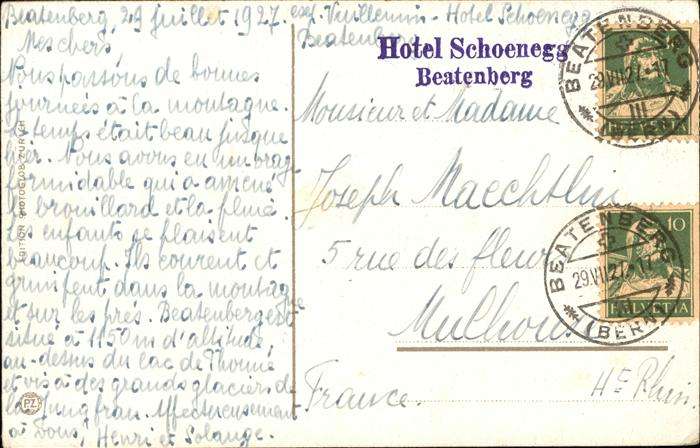 Beatenberg, 29 juillet 1927. exp. Vuillemin - Hotel Schoenegg
Beatenberg
Mes chers
Nous passons de bonnes
journées à la montagne.
Le temps était beau jusque
hier. Nous avons eu un orage
formidable qui a amené
le brouillard et la pluie.
Les enfants se plaisent
beaucoup. Ils courent et
grimpent dans la montagne
et sur les prés. Beatenberg est
situé à 1150 m d'altitude,
au-dessus du lac de Thoune
et vis à des grands glaciers de
la Jungfrau. Affectueusement
à vous, Henri et Solange.
Hotel Schoenegg
Beatenberg
Monsieur et Madame
Joseph Maechtlin
5 rue des fleurs
Mulhouse
Ht Rhin
France.
EDITION PHOTOGLOB ZÜRICH
PZ
BEATENBERG
29.VII.27.-17
III
HELVETIA
10
BEATENBERG
29.VII.27.-17
(BERN)
HELVETIA